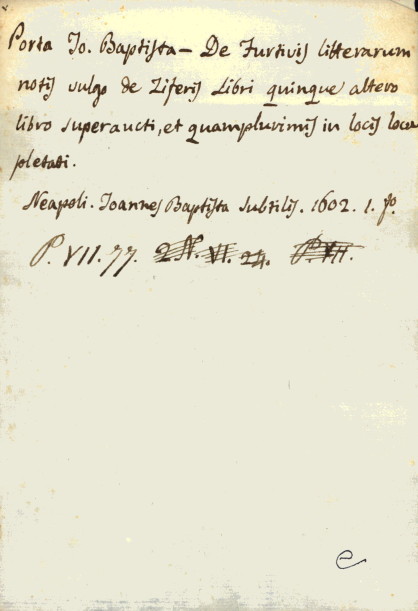 Porta Io. Baptista - De Furtivis litterarum
notis vulgo de Ziferis Libri quinque altero
libro superaucti, et quamplurimis in locis locu
pletati.
Neapoli. Ioannes Baptista Subtilis. 1602. 1. fo.
P. VII. 77. 2. N. VI. 24. P. VII.
e